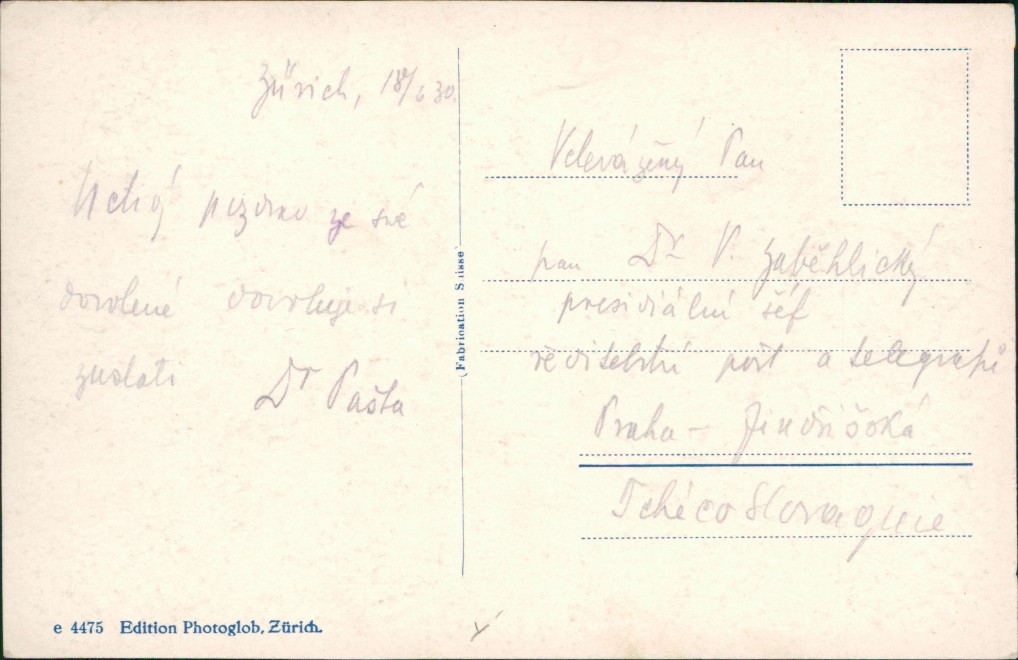 Zürich, 18/6 30.
Uctivý pozdrav ze své
dovolené dovoluje si
zaslati
Dr Pašta
(Fabrication Suisse)
Velevážený Pan
pan Dr V. Zaběhlický
presidiální šéf
ředitelství pošt a telegrafů
Praha – Jindřišská
Tchécoslovaquie
e 4475 Edition Photoglob, Zürich.